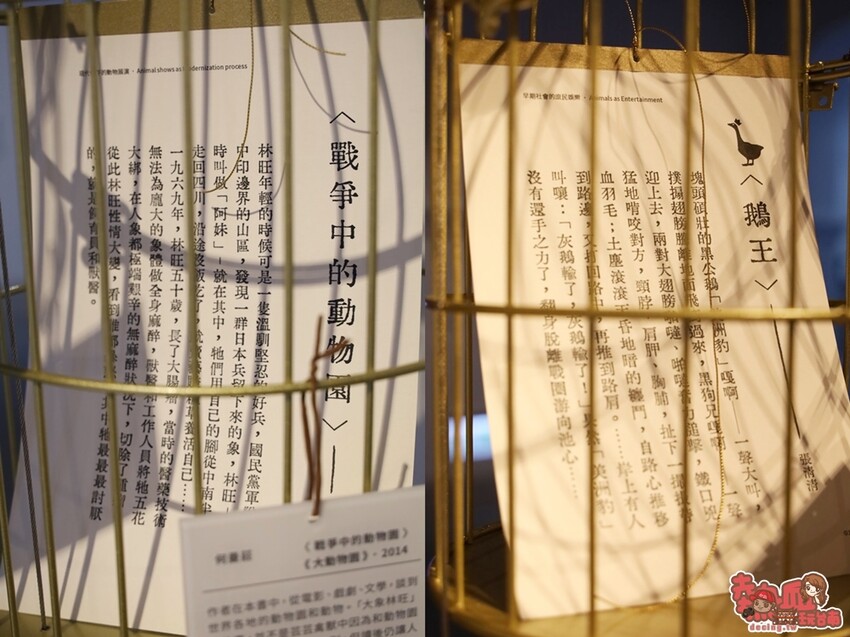 現代化下的動物展演・Animal shows as modernization process
〈戰爭中的動物園〉——
林旺年輕的時候可是一隻溫馴堅忍的好兵，國民黨軍
中印邊界的山區，發現一群日本兵留下來的象，林旺——
時叫做「阿妹」——就在其中，牠們用自己的腳從中南半
走回四川，沿途沒飯吃了，養活自己……
一九六九年，林旺五十歲，長了大腸瘤，當時的醫藥技術
無法為龐大的象體做全身麻醉，獸醫和工作人員將牠五花
大綁，在人象都極端艱辛的無麻醉狀況下，切除了
從此林旺性情大變，看到誰都其中牠最最最討厭
的，就是飼育員和獸醫。
何曼莊
〈戰爭中的動物園〉
《大動物園》・2014
作者在本書中，從電影、戲劇、文學，談到
世界各地的動物園和動物。「大象林旺」
早期社會的庶民娛樂・Animals as Entertainment
〈鵝王〉——
張清清
塊頭碩壯的黑公鵝「美洲豹」嘎啊——一聲大叫，
撲搧翅膀騰離地面飛過來，黑狗兄嘎啊——一聲
迎上去，兩對大翅膀追擊，鐵口兇
猛地啃咬對方，頸脖、肩胛、胸脯，扯下一撮撮帶
血羽毛；土塵滾滾天昏地暗的纏鬥，自路心推移
到路邊，又打回路中，再推到路肩。……岸上有人
叫嚷：「灰鵝輸了，灰鵝輸了！」果然「美洲豹」
沒有還手之力了，翻身脫離戰圈游向池心……
decing.tw